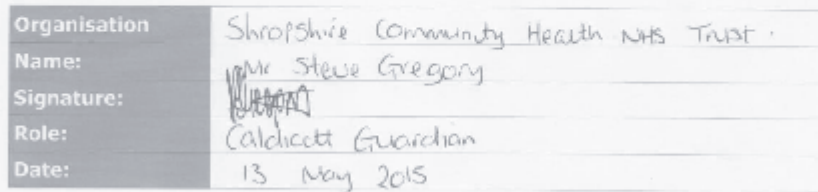 Organisation Shropshire Community Health NHS Trust.
Name: Mr Steve Gregory
Signature:
Role: Caldicott Guardian
Date: 13 May 2015